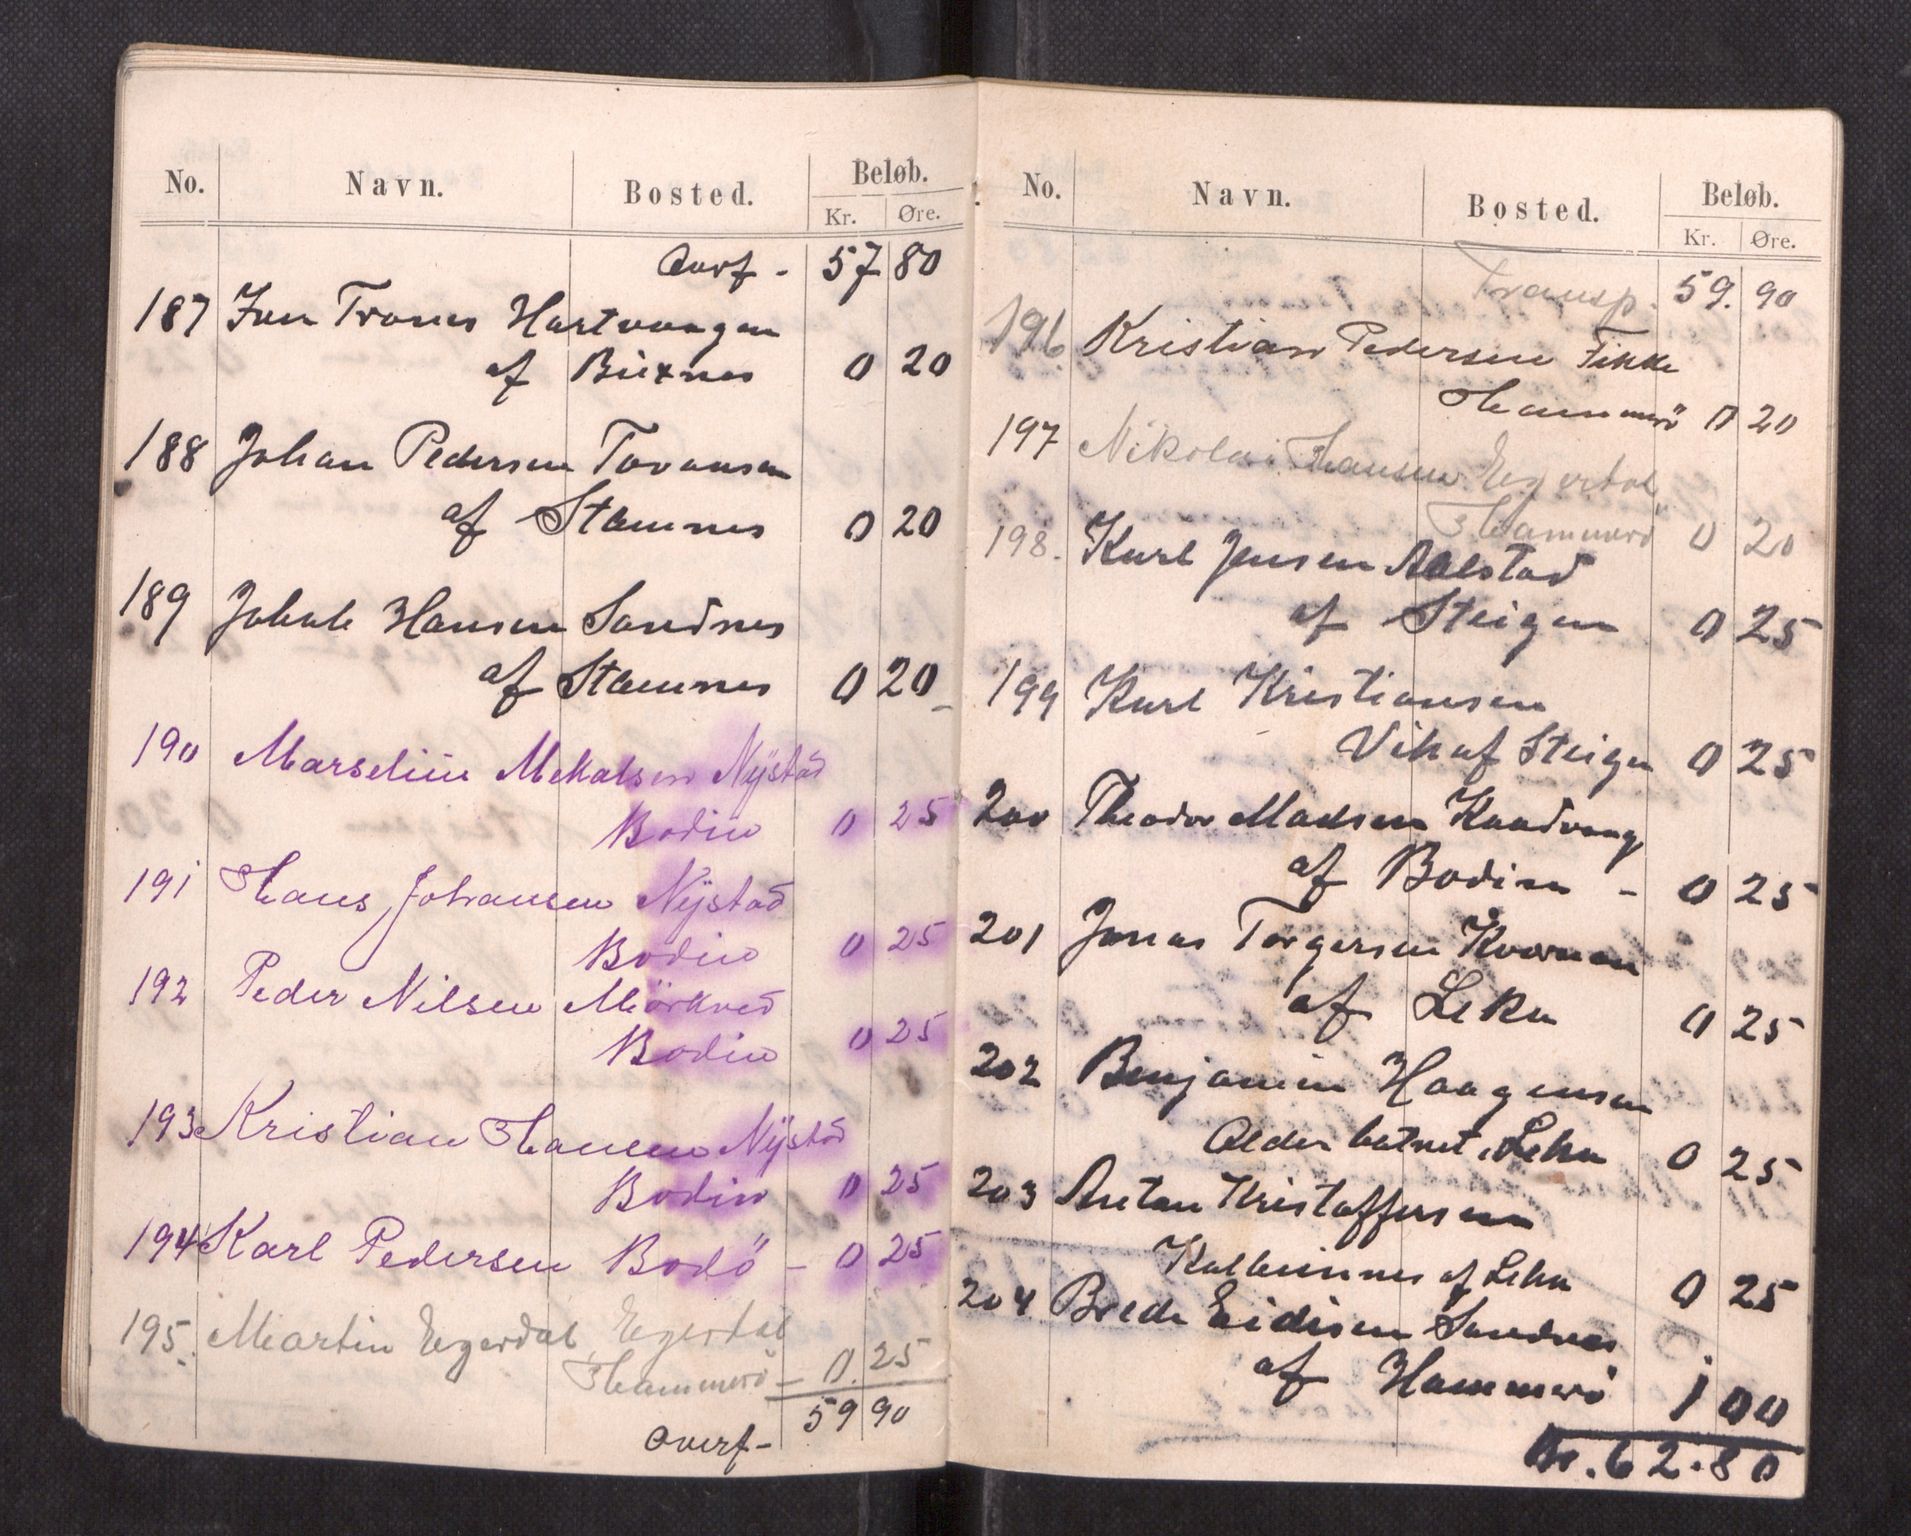 No. Navn. Bosted. Beløb.
Kr. Øre.
Overf - 57 80
187 Iver Trones Hartvaagen
af Bixnes 0 20
188 Johan Pedersen Tovansen
af Stamnes 0 20
189 Jakob Hansen Sandnes
af Stamnes 0 20
190 Marseliu Mekalsen Nÿstad
Bodin 0 25
191 Hans Johansen Nÿstad
Bodin 0 25
192 Peder Nilsen Mörkved
Bodin 0 25
193 Kristian Hansen Nÿstad
Bodin 0 25
194 Karl Pedersen Bodö - 0 25
195. Martin Egerdal Egerdal
Hammerö - 0.25
Overf - 59 90
No. Navn. Bosted. Beløb.
Kr. Øre.
Transp. 59. 90
196 Kristian Pedersen Fikke
Hammerö 0 20
197 Nikolai Hansen Egerdal
Hammerö 0 20
198. Karl Jensen Aalstad
af Steigen 0 25
199 Karl Kristiansen
Vik af Steigen 0 25
200 Theodor Madsen Kaadvaag
af Bodin - 0 25
201 Jonas Torgersen Kvernen
af Leka 0 25
202 Benjamin Haagensen
Alder batnet, Leka 0 25
203 Anton Kristoffersen
Kalbeinnes af Leka 0 25
204 Brede Eidisen Sandnes
af Hammerö 1 00
Kr. 62.80